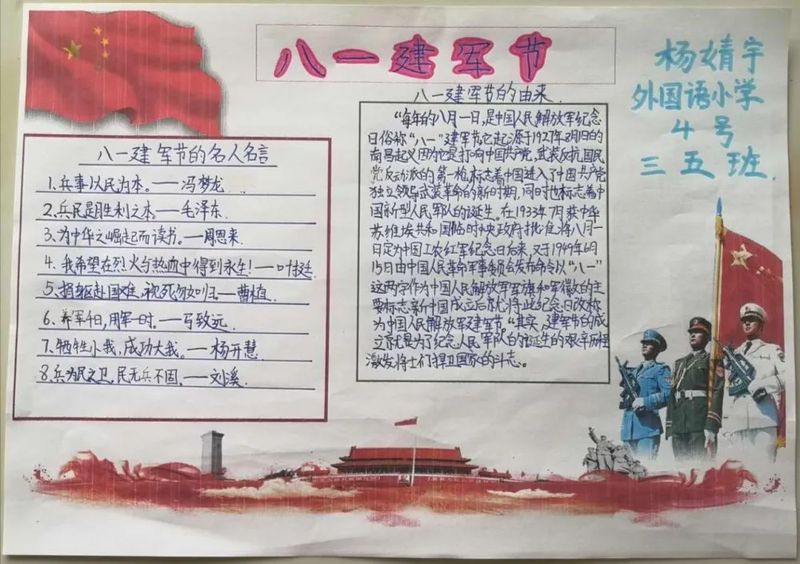 八一建军节
杨婧宇
外国语小学
4号
三五班
八一建军节的名人名言
1、兵事以民为本。——冯梦龙
2、兵民是胜利之本。——毛泽东
3、为中华之崛起而读书。——周恩来
4、我希望在烈火与热血中得到永生!——叶挺
5、捐躯赴国难,视死忽如归。——曹植
6、养军千日,用军一时。——马致远
7、牺牲小我,成功大我。——杨开慧
8、兵为民之卫,民无兵不固。——刘溪
八一建军节的由来
“每年的八月一日,是中国人民解放军纪念
日俗称“八一”建军节它起源于1927年8月1日的
南昌起义因为它是打响中国共产党,武装反抗国民
党反动派的第一枪,标志着中国进入了中国共产党
独立领导武装革命的新时期,同时也标志着中
国新型人民军队的诞生。在1933年7月获中华
苏维埃共和国临时中央政府批准,将八月一
日定为中国工农红军纪念日后来,又于1949年6月
15日由中国人民革命军事委员会发布命令以“八一”
这两字作为中国人民解放军军旗和军徽的主
要标志新中国成立后就将此纪念日改称
为中国人民解放军建军节。“其实,建军节的成
立就是为了纪念人民军队的诞生的艰辛历程
激发将士们捍卫国家的斗志。